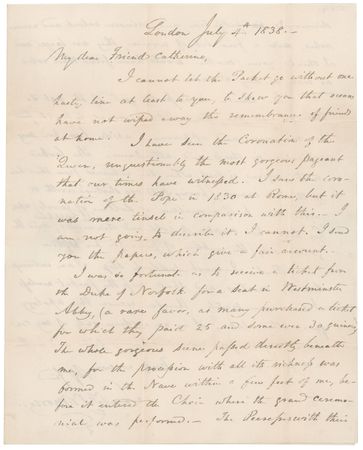 London July 4th 1838.—
My dear Friend Catherine,
I cannot let the Packet go without one
hasty line at least to you, to show you that oceans
have not wiped away the remembrance of friends
at home. I have seen the Coronation of the
Queen, unquestionably the most gorgeous pageant
that our times have witnessed. I saw the coro-
nation of the Pope in 1830 at Rome, but it
was mere tinsel in comparison with this.— I
am not going to describe it. I cannot. I send
you the papers, which give a fair account.
I was so fortunate as to receive a ticket from
the Duke of Norfolk for a seat in Westminster
Abby, (a rare favor, as many purchased a ticket
for which they paid 25 and some even 30 guineas
The whole gorgeous scene passed directly beneath
me, for the procession with all its richness was
formed in the Nave within a few feet of me, be-
fore it entered the Choir where the grand ceremo-
nial was performed.— The Peeresses with their